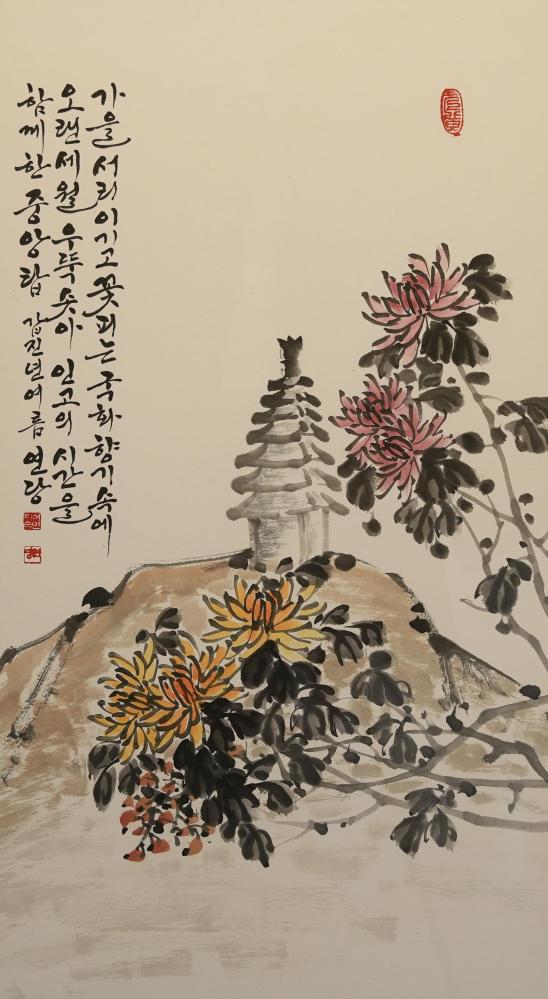 가을 서리 이기고 꽃피는 국화 향기 속에
오랜 세월 우뚝 솟아 인고의 시간을
함께한 중앙탑 갑진년 여름 연당